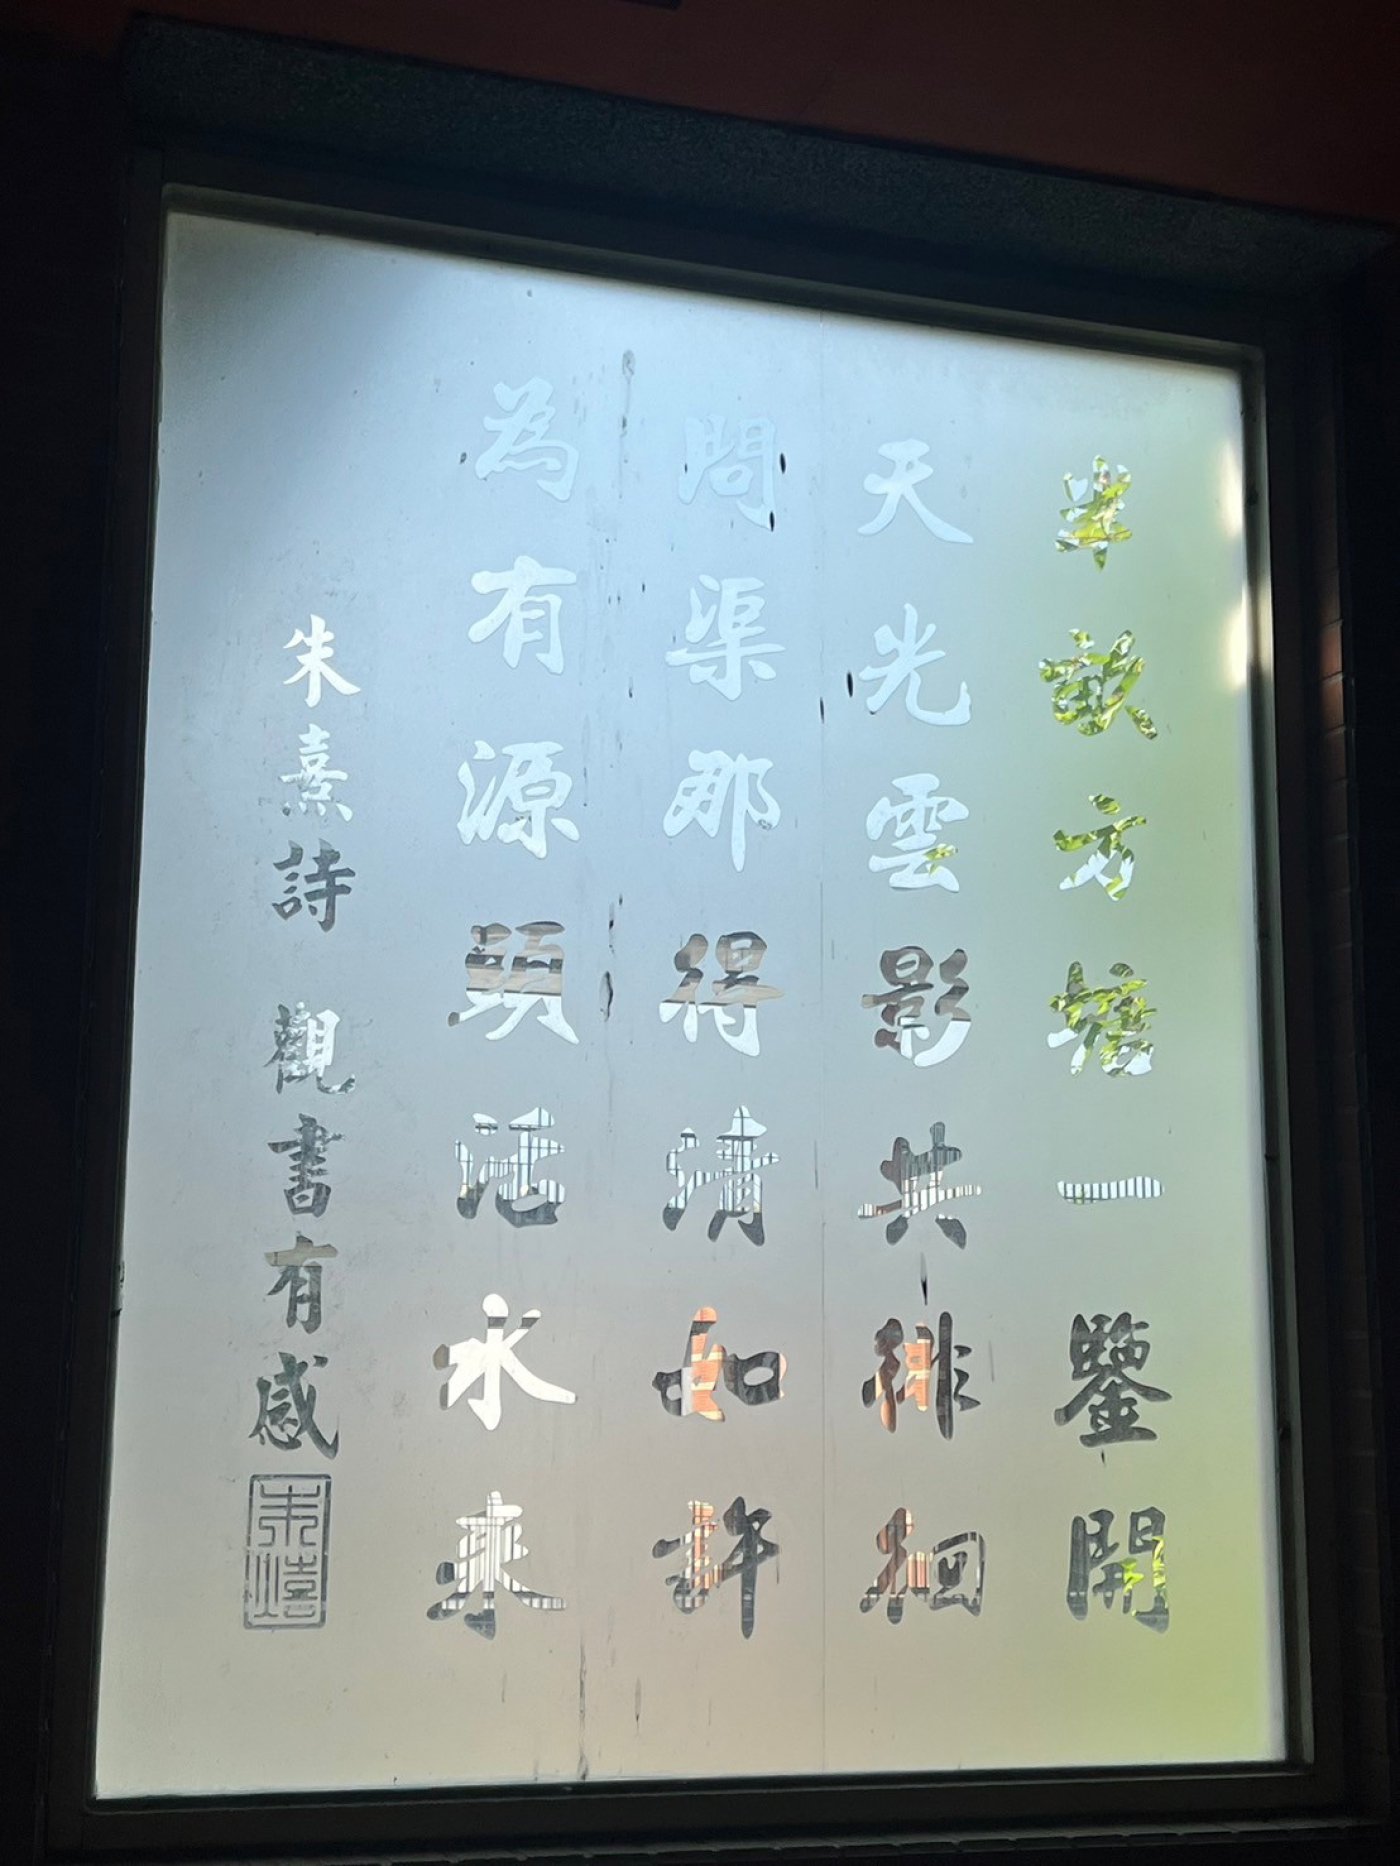 半畝方塘一鑒開
天光雲影共徘徊
問渠那得清如許
為有源頭活水來
朱熹詩 觀書有感
朱熹